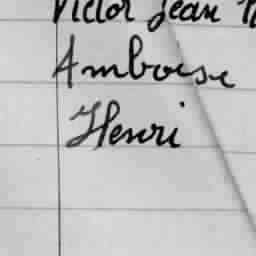 Victor Jean
Amboise
Henri